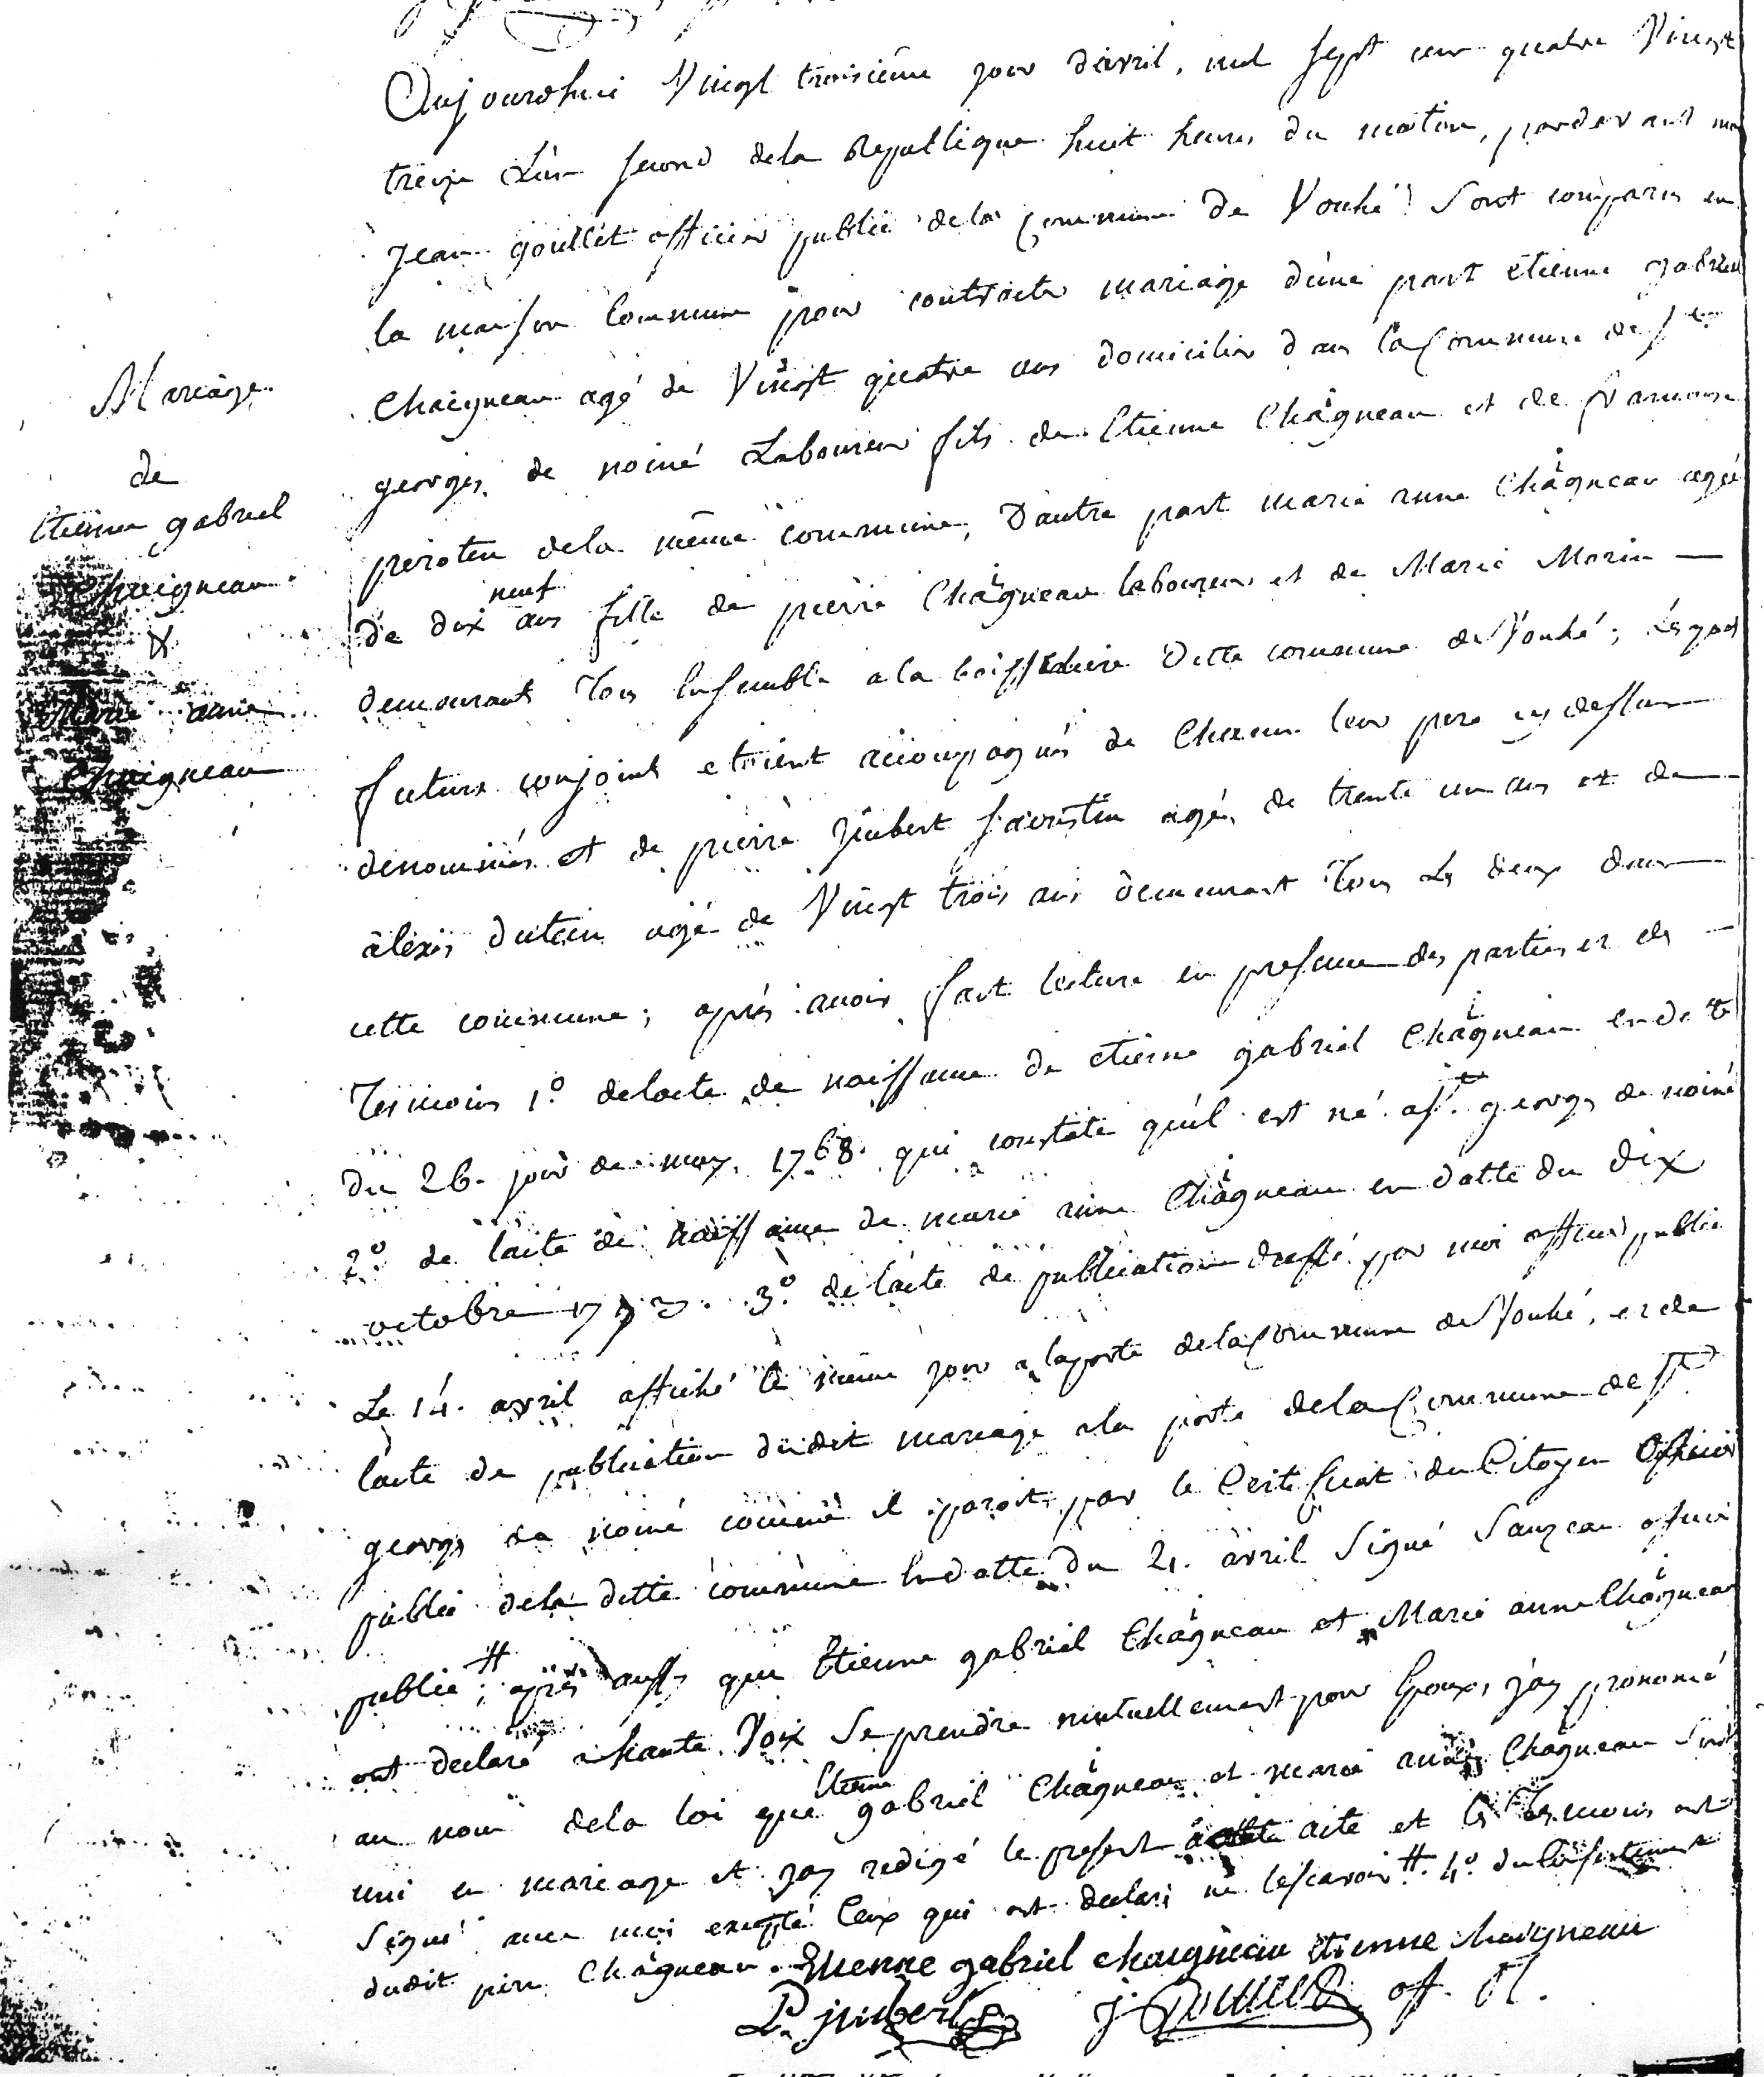 Mariage
de
Etienne gabriel
Chaigneau
&
Marie anne
Chaigneau
Aujourdhui Vingt troisième jour d'avril, mil sept cens quatre Vingt
treize L'an second dela Republique huit heures du matin, pardevant moi
Jean goullet officier public dela Commune de Vouhé Sont comparus en
la maison Commune pour contracter mariage d'une part etienne gabriel
Chaigneau agé de Vingt quatre ans domicilié dans la Commune de St
georges de noiné Laboureur fils de Etienne Chaigneau et de francoise
peroteu dela même commune, D'autre part marie anne Chaigneau agée
de dix neuf ans fille de pierre Chaigneau laboureur et de Marie Morin —
demeurants Tous Ensemble a la Ditte commune de Vouhé; Lesquels
futurs conjoints etoient accompagnés de Chacun leur pere cy dessus
dénommés et de pierre jimbert sacristin agé de trente un ans et de
alexis dutein agé de Vingt trois ans demeurant Tous Les deux dans
cette commune; après avoir fait lecture en presence des parties et des —
Temoins 1° delacte de naissance de etienne gabriel Chaigneau en datte
du 26. jour de may. 1768. qui constate qu'il est né a St. georges de noiné
2° de l'acte de naissance de marie anne Chaigneau en datte du dix
octobre 1773. 3° de l'acte de publication dressé par moi officier public
Le 14. avril affiché le même jour a laporte dela Commune de Vouhé, et de
l'acte de publication dudit mariage a la porte dela Commune de St.
georges de noiné comme il paroit par le Certificat du Citoyen Officier
public dela ditte commune En datte du 21. avril Signé Sauzeau officier
public; # après aussy que Etienne gabriel Chaigneau et Marie anne Chaigneau
ont declaré a haute Voix Se prendre mutuellement pour Epoux, j'ay prononcé
au nom dela loi que Etienne gabriel Chaigneau et marie anne Chaigneau Sont
uni en mariage et jay redigé le present acte et les Temoins ont
Signé avec moi excepté Ceux qui ont declaré ne le scavoir # 4° du Consentement
dudit pere Chaigneau. Etienne gabriel chaigneau etienne chaigneau
P. jimbert J. Goullet off. P.